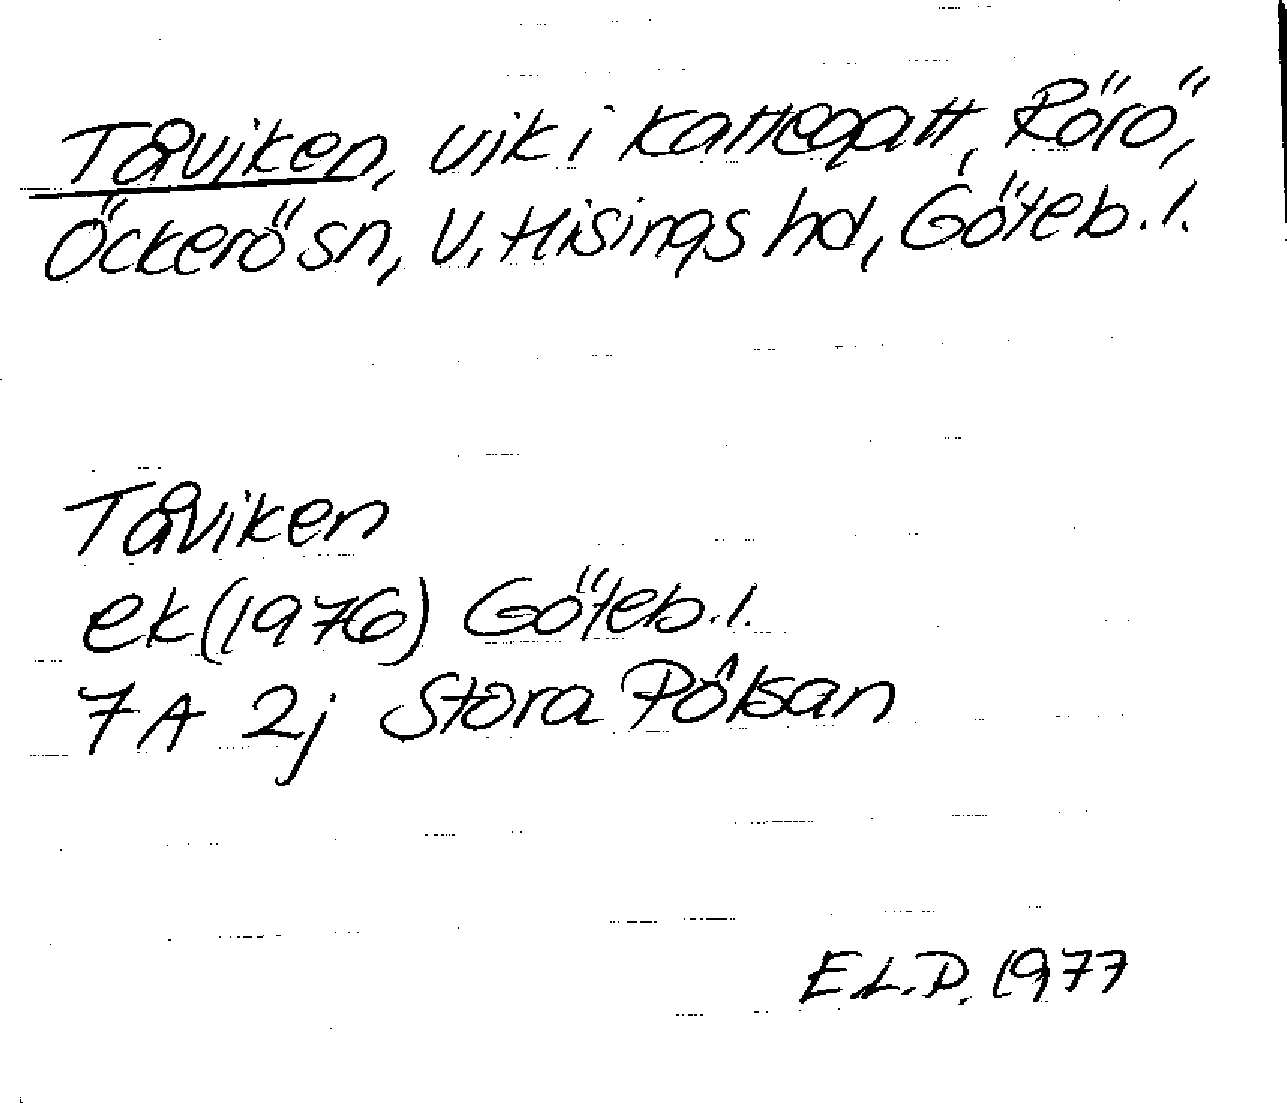 Tåviken, vik i Kattegatt, Rörö,
Öckerö sn, V. Hisings hd, Göteb. l.
Tåviken
ek (1976) Göteb. l.
7 A 2j Stora Pölsan
E.L.D. 1977